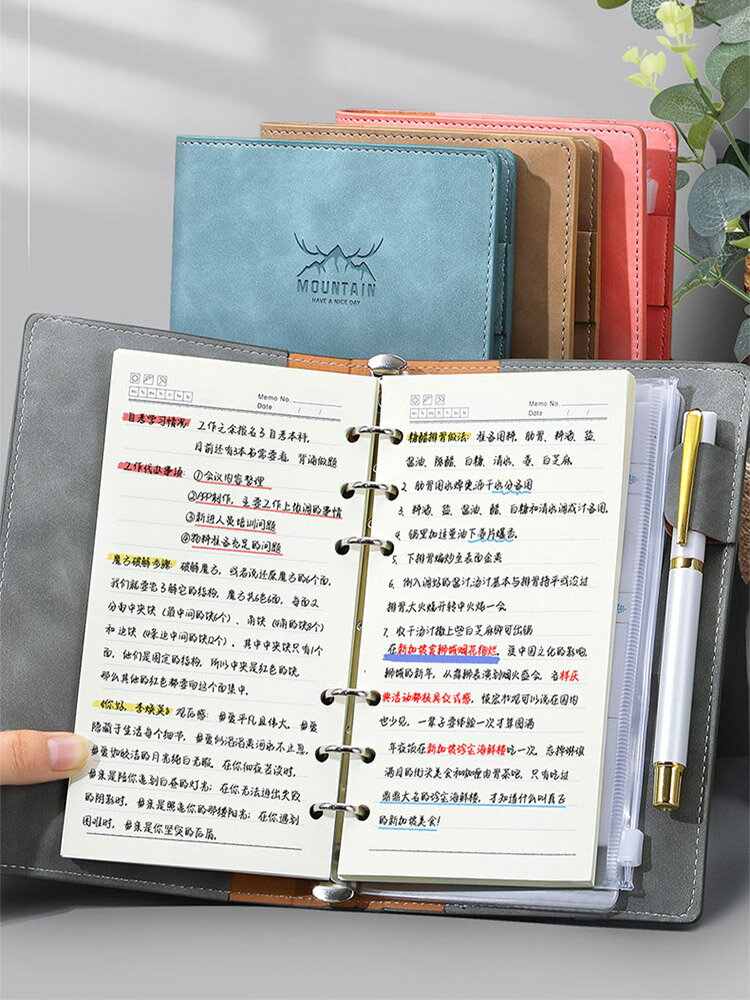 MOUNTAIN
HAVE A NICE DAY
Memo No.
Date / /
自考学习情况: 工作之余报名了自考本科,
目前还有3本书需要看, 背海做题
工作代办事项: ①会议内容整理
②PPP制作, 主要工作上协调的事情
③新进人员培训问题
④物料准备充足的问题
魔方破解步骤: 破解魔方, 或者说还原魔方的6个面,
我们就要先了解它的结构, 魔方共6色6面, 每面又
分为中央块(最中间的块6个)、角块(4角的块8个)
和边块(4条边中间的块12个), 其中中央块只有1个
面, 他们是固定的结构, 所以中央是红色的块,
那么其他的红色都要向这个面集中.
《你好, 李焕英》观后感: 母爱平凡且伟大, 母爱
隐藏于生活每个细节, 母爱似滔滔黄河永不止息,
母爱如皎洁的月光纯白无暇, 在你细夜苦读时,
母亲是陪你走到白昼的灯光; 在你无法逃出失败
的阴影时, 母亲是照亮你的那缕阳光; 在你遇到
困难时, 母亲是你坚实的后盾.
Memo No.
Date / /
糖醋排骨做法: 准备用料, 肋骨, 料酒, 盐,
酱油, 陈醋, 白糖, 清水, 姜, 白芝麻
2. 肋骨用水焯烫, 沥干水分备用
3. 料酒, 盐, 酱油, 醋, 白糖和清水调成汁备用.
4. 锅里加适量油下姜片爆香.
5. 下排骨煸炒至表面金黄
6. 倒入调好的酱汁, 汤汁基本与排骨持平或没过
排骨, 大火烧开转中火烧一会
7. 收干汤汁撒上些白芝麻即可出锅
在新加坡赏狮城烟花绚烂, 受中国文化的影响,
狮城的新年, 从舞狮表演到烟火盛会, 各样庆
典活动都极具仪式感, 候宏壮观可以说在国内
也少见, 一辈子要体验一次才算圆满
年夜饭在新加坡珍宝海鲜楼吃一次,
满目的街头美食和咖喱肉骨茶吧, 只有吃过
鼎鼎大名的珍宝海鲜楼, 才知道什么叫真正
的新加坡美食!